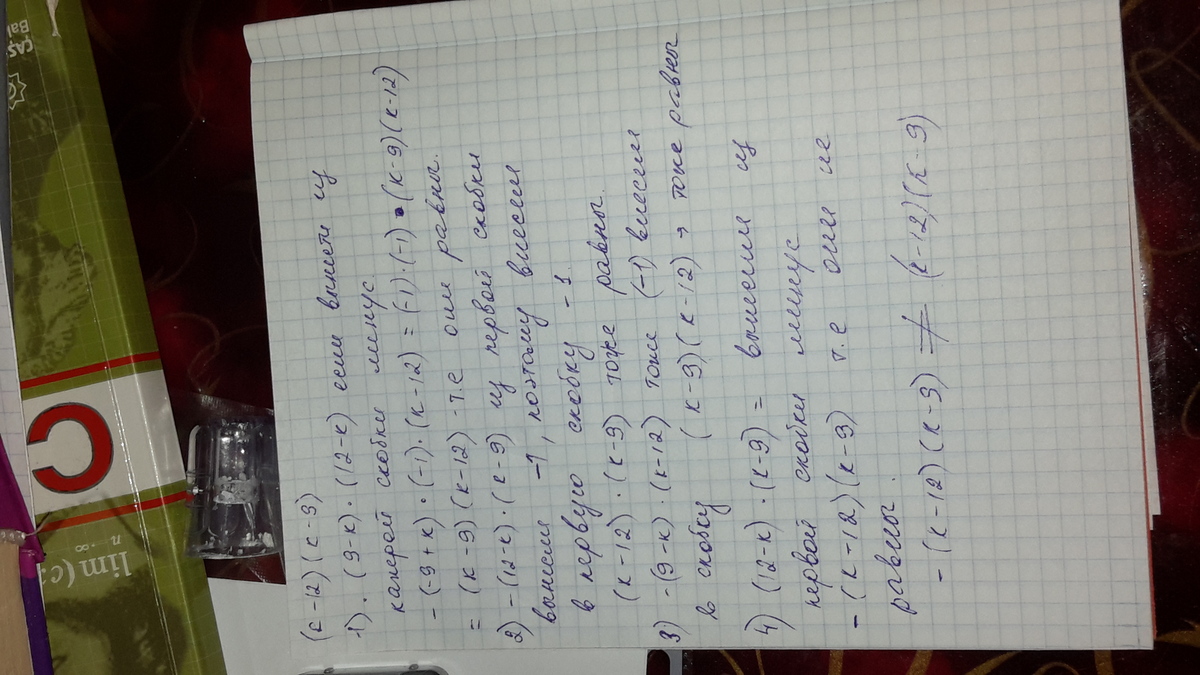 (к-12)(к-9)
1) · (9-к)·(12-к) если вынети из
каждой скобки минус
-(-9+к)·(-1)·(к-12) = (-1)·(-1)·(к-9)(к-12)
= (к-9)(к-12) - т.е они равны.
2) -(12-к)·(к-9) из первой скобки
вынесем -1, поэтому внесем
в первую скобку -1.
(к-12)·(к-9) тоже равны.
3) -(9-к)·(к-12) тоже (-1) внесем
в скобку (к-9)(к-12) → тоже равны
4) (12-к)·(к-9) = вынесем из
первой скобки минус
-(к-12)(к-9) т.е они не
равны.
-(к-12)(к-9) ≠ (к-12)(к-9)
CAS
Bak
C
lim (c:
n→∞